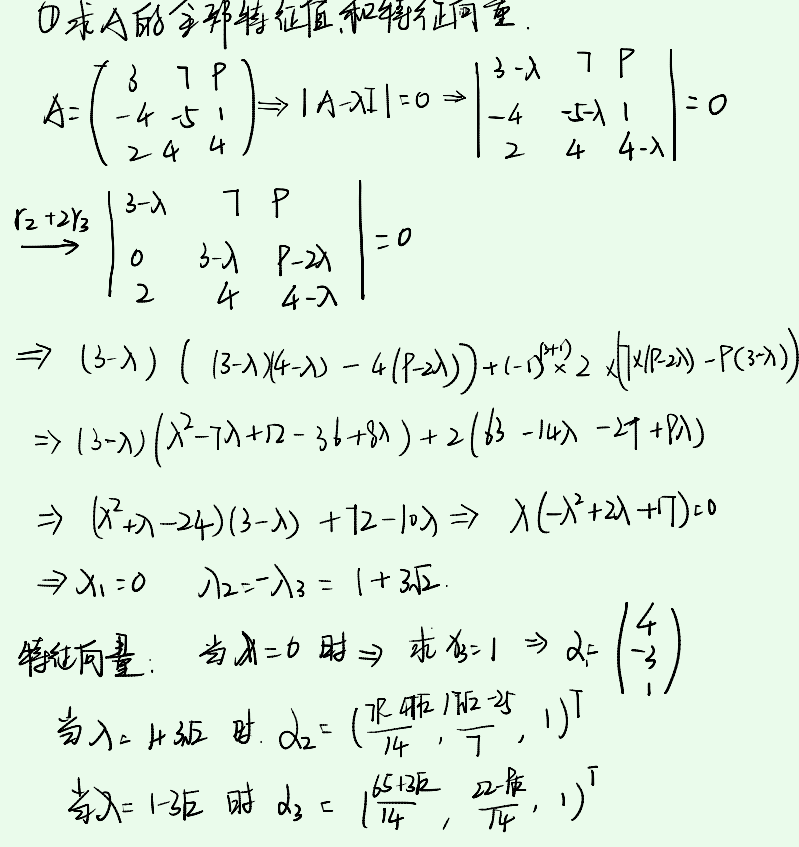 ①求A的全部特征值和特征向量.
A=(3 7 9; -4 -5 1; 2 4 4) ⇒ |A-λI|=0 ⇒ |3-λ 7 9; -4 -5-λ 1; 2 4 4-λ|=0
r₂+2r₃ → |3-λ 7 9; 0 3-λ 9-2λ; 2 4 4-λ|=0
⇒ (3-λ)((3-λ)(4-λ)-4(9-2λ))+(-1)^(3+1)×2×(7×(9-2λ)-9(3-λ))
⇒(3-λ)(λ²-7λ+12-36+8λ)+2(63-14λ-27+9λ)
⇒ (λ²+λ-24)(3-λ)+72-10λ ⇒ λ(-λ²+2λ+17)=0
⇒λ₁=0 λ₂=-λ₃=1+3√2.
特征向量: 当λ=0时⇒ 求x₃=1 ⇒ α₁=(4; -3; 1)
当λ=1+3√2 时. α₂=(
/14, 17√2-25/7, 1)ᵀ
当λ=1-3√2 时 α₃=(65+3√2/14,
/14, 1)ᵀ